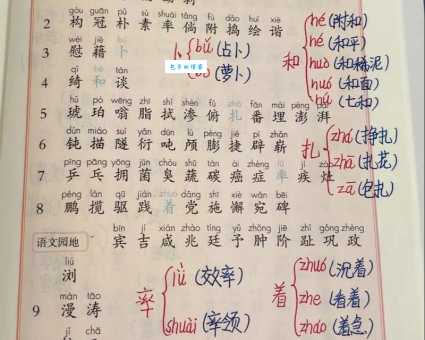 gòu guān pǔ sù shuài tǎng fù dǎo huì xié
2 构 冠 朴 素 率 倘 附 捣 绘 谐
wèi jiè bo
3 慰 藉 卜
卜 bǔ (占卜)
bo (萝卜)
包享的博客
qǐ tán
4 绮 和 谈
和 hé (附和)
hé (和平)
huò (和稀泥)
huó (和面)
hú (七和)
hǔ pò wēng zhī shì shèn fǔ zhā fān mái péng pài
5 琥 珀 嗡 脂 拭 渗 俯 扎 番 埋 澎 湃
dùn miáo suì yǎn dūn lú péng jié pì zhǎn
6 钝 描 隧 衍 吨 颅 膨 捷 辟 崭
扎 zhá (挣扎)
zhā (扎花)
zā (包扎)
pīng pāng yōng jūn chòu shū tàn ái zhèng lǜ jí zāo
7 乒 乓 拥 菌 臭 蔬 碳 癌 症 率 疾
péng lǎn qū jiàn zhuó dǎng shī xiè wǎn bēi
8 鹏 揽 驱 践 着 党 施 懈 宛 碑
bīn jí xián zhào tíng yǔ zhǒng jiē zhǐ gǒng zhèng
语文园地 宾 吉 咸 兆 廷 予 肿 阶 趾 巩 政
liú
浏
率 lǜ (效率)
shuài (率领)
着 zhuó (沉着)
zhe (看着)
zháo (着急)
màn tāo
9 漫 涛
jī chā